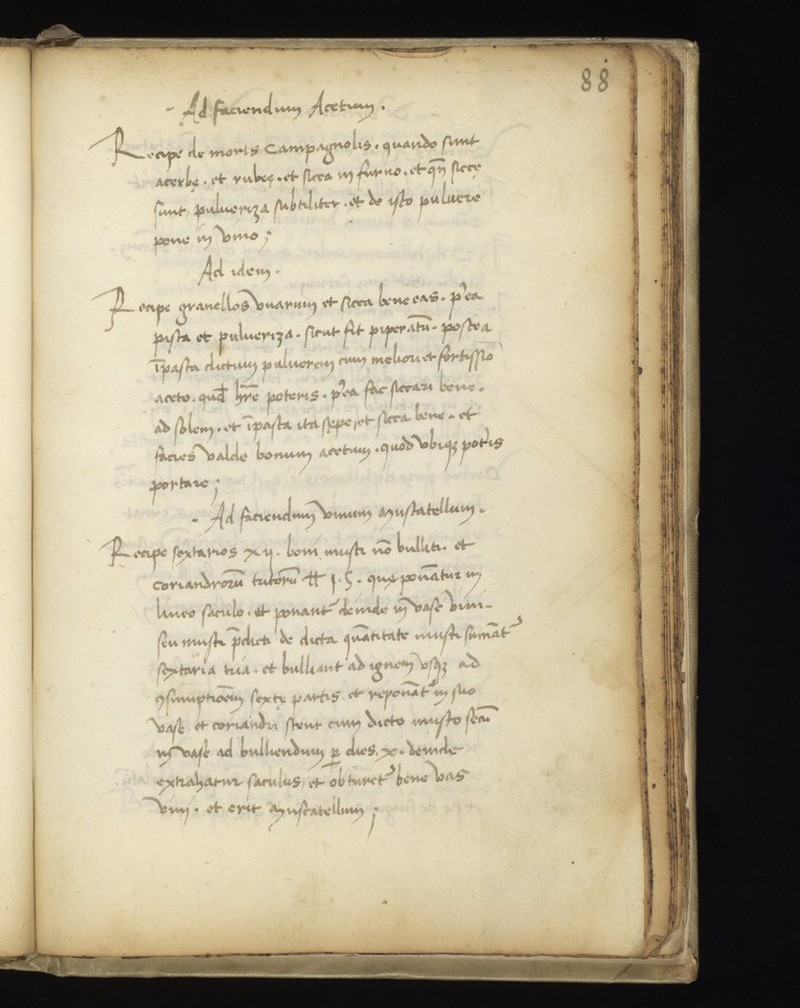 88
- Ad faciendum Acetum .
Recipe de moris Campagnolis . quando sunt
acerbę . et rubeę . et sicca in furno . et qn̄ sicce
sunt pulueriza subtiliter . et de isto puluere
pone in vino ;
Ad idem .
Recipe granellos vuarum et sicca bene eas . p'ea
pista et pulueriza . sicut fit piperatū . postea
īpasta dictum puluerem cum meliori et fortissīo
aceto . quod hr̄e poteris . p'ea fac siccari bene .
ad solem . et īpasta ita sepe, et sicca bene . et
facies valde bonum acetum . quod vbiqꝫ pot'is
portare ;
- Ad faciendum vinum muscatellum .
Recipe sextarios xij . boni musti nō bulliti . et
coriandrorū tritorū ℔ j . S . quę ponātur in
lineo saculo . et ponant᷑ deinde in vase vini
seu musti p̄dicti de dicta quātitate musti sumāt᷑
sextaria tria . et bulliant ad ignem vsqꝫ ad
ꝯsumptioēm sextę partis . et reponāt᷑ in suo
vase . et coriandri stent cum dicto musto secū
in vase ad bulliendum ꝑ dies x . deinde
extrahatur saculus, et obturet᷑ bene vas
vini . et erit muscatellum ;